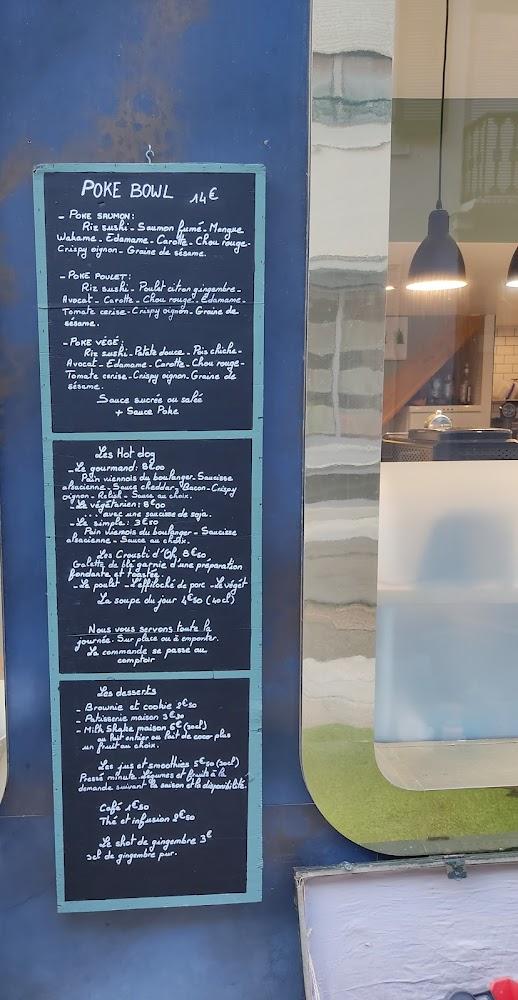 POKE BOWL 14€
- POKE SAUMON:
Riz sushi - Saumon fumé - Mangue
Wakame - Edamame - Carotte - Chou rouge -
Crispy oignon - Graine de sésame.
- POKE POULET:
Riz sushi - Poulet citron gingembre -
Avocat - Carotte - Chou rouge - Edamame -
Tomate cerise - Crispy oignon - Graine de
sésame.
- POKE VÉGÉ:
Riz sushi - Patate douce - Pois chiche -
Avocat - Edamame - Carotte - Chou rouge -
Tomate cerise - Crispy oignon - Graine de
sésame.
Sauce sucrée ou salée
+ Sauce Poke
Les Hot dog
- Le gourmand: 8€00
Pain viennois du boulanger - Saucisse
alsacienne - Sauce cheddar - Bacon - Crispy
oignon - Relish - Sauce au choix.
- Le végétarien: 8€00
... avec une saucisse de soja.
- Le simple: 3€50
Pain viennois du boulanger - Saucisse
alsacienne - Sauce au choix.
Les Crousti d'Oh, 8€50,
Galette de blé garnie d'une préparation
fondante et toastée.
- Le poulet - L'effiloché de porc - Le végét
La soupe du jour 4€50 (40cl)
Nous vous servons toute la
journée. Sur place ou à emporter.
La commande se passe au
comptoir
Les desserts
- Brownie et cookie 2€50
- Patisserie maison 3€
- Milk Shake maison 6€ (30cl)
au lait entier ou lait de coco plus
un fruit au choix.
Les jus et smoothies 5€50 (30cl)
Pressé minute. Légumes et fruits à la
demande suivant la saison et la disponibilité.
Café 1€50
Thé et infusion 2€50
Le shot de gingembre 3€
3cl de gingembre pur.